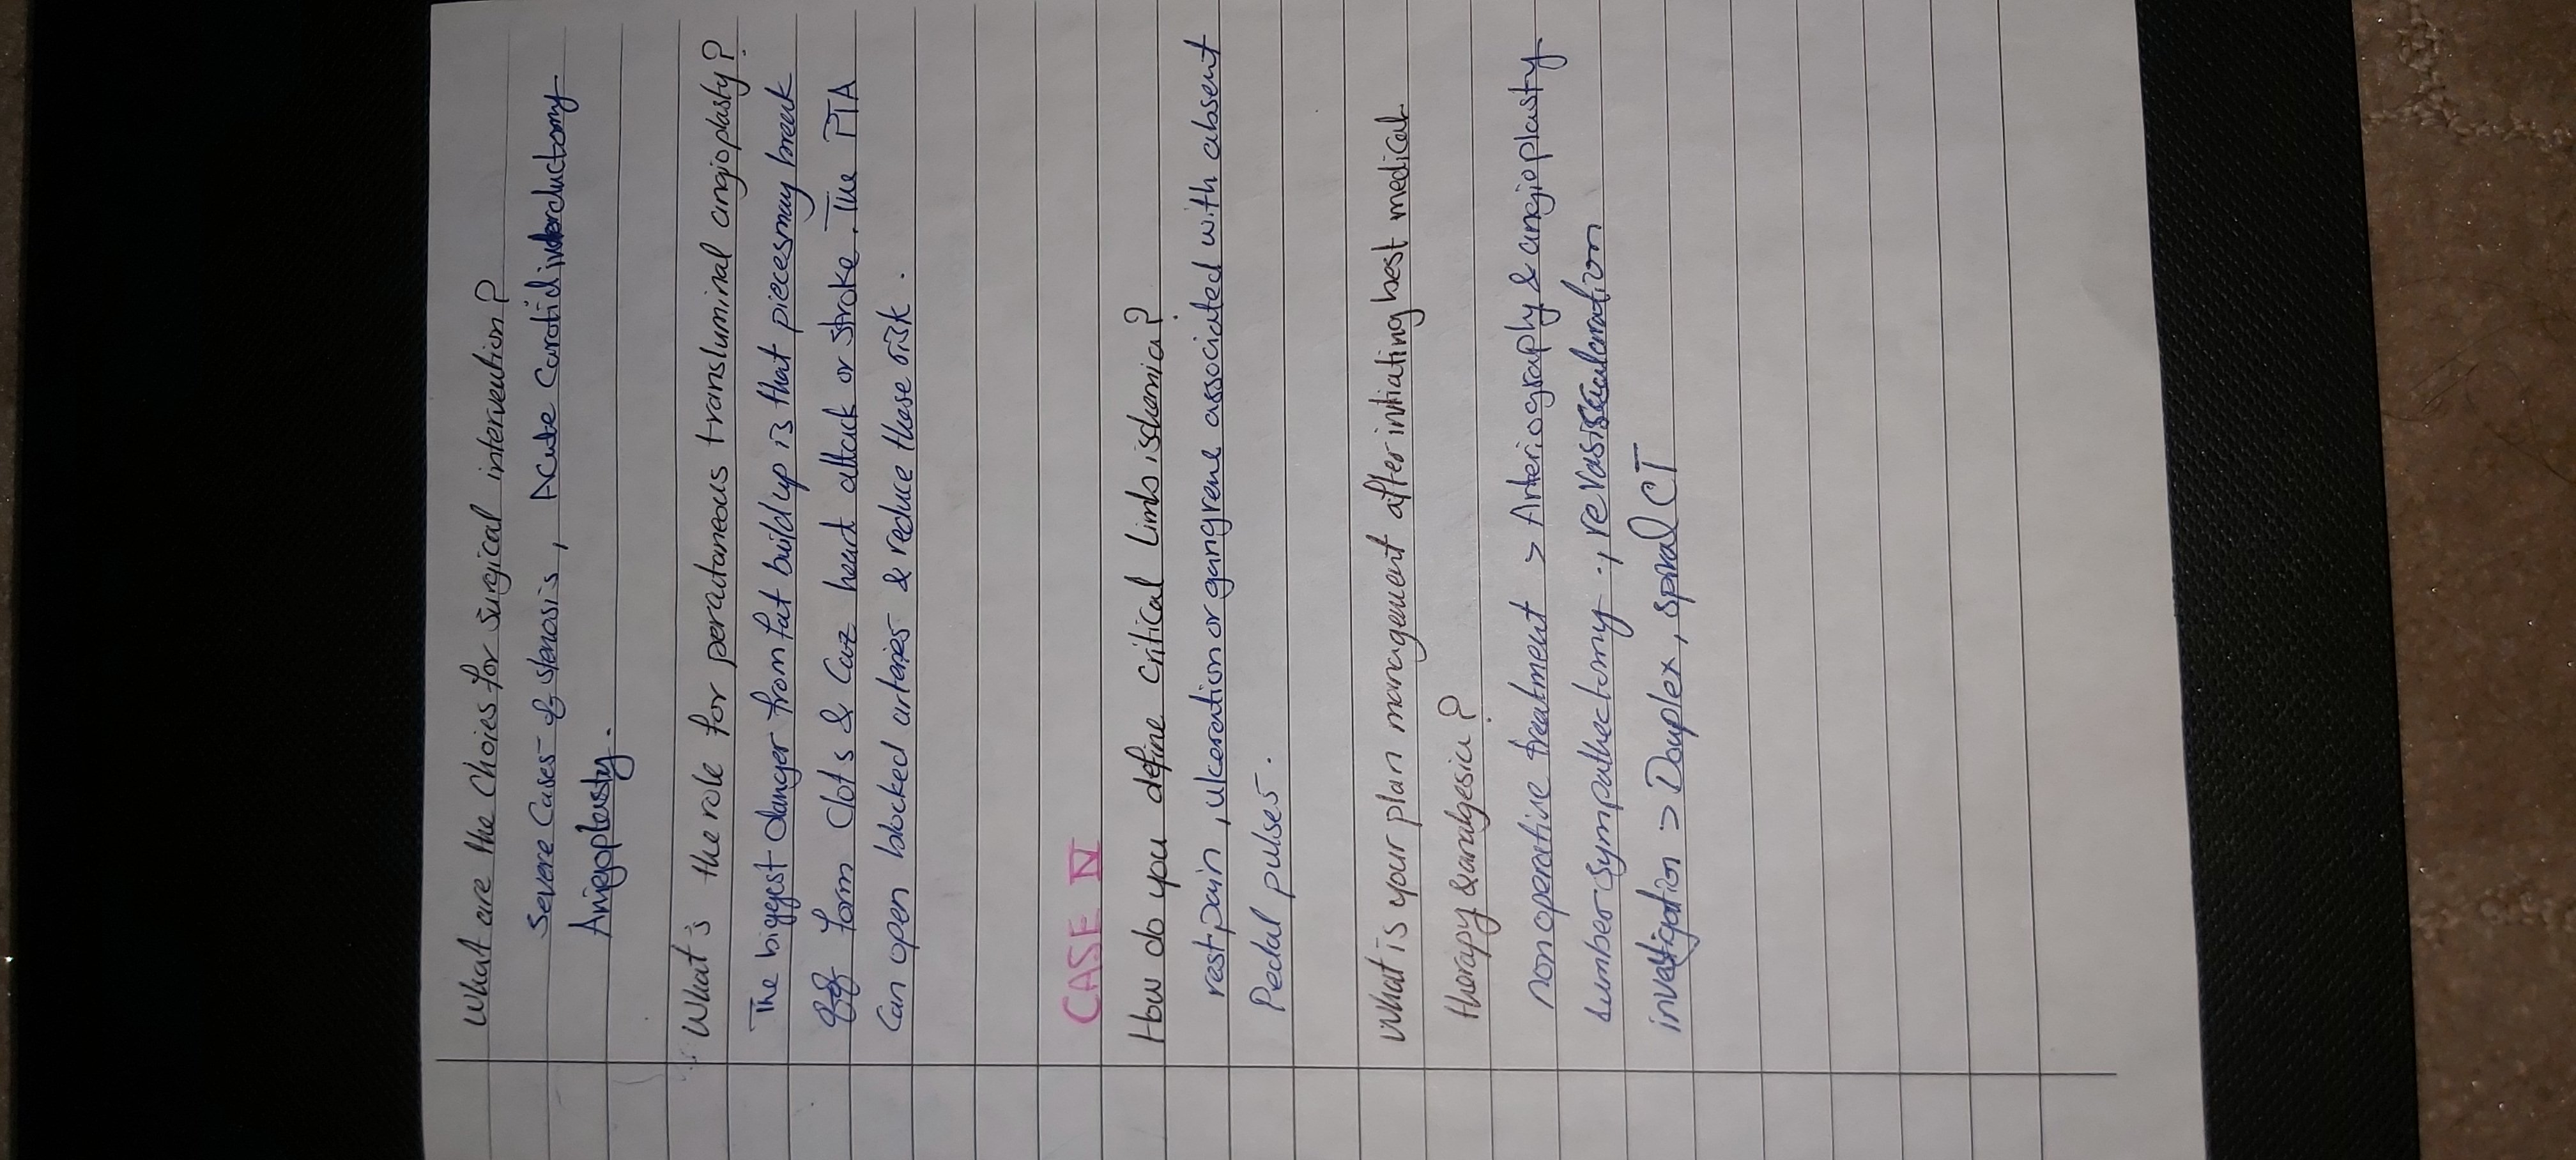 What are the Choies for surgical intervention?
Severe Cases of stenosis, Acute Carotid
Angioplasty.
What's the role for perautaneous transluminal angioplasty?
The biggest danger from fat build up is that pieces may break
off form Clots & Cuz heart attack or stroke. The PTA
Can open blocked arteries & reduce these risk.
CASE IV
How do you define critical Limb ischemia?
rest pain, ulceration or gangrene associated with absent
Pedal pulses.
What is your plan management after initiating best medical
therapy & analgesia?
non operative treatment > Arteriography & angioplasty
Lumber sympathectomy
investigation > Douplex, spiral CT